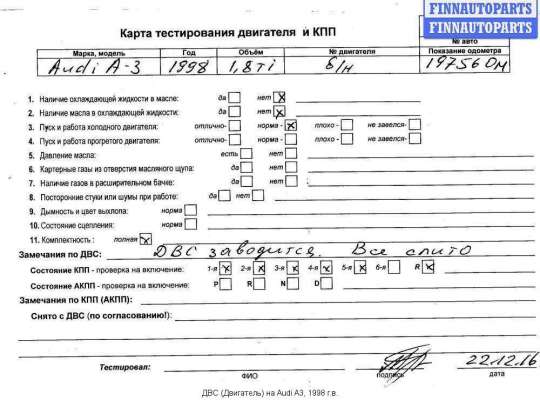 FINNAUTOPARTS
FINNAUTOPARTS
Карта тестирования двигателя и КПП
№ авто
Марка, модель Год Объём № двигателя Показание одометра
Audi A-3 1998 1,8ti б/н 197560км
1. Наличие охлаждающей жидкости в масле: да нет x
2. Наличие масла в охлаждающей жидкости: да нет x
3. Пуск и работа холодного двигателя: отлично- норма - x плохо - не завелся-
4. Пуск и работа прогретого двигателя: отлично- норма - плохо - не завелся-
5. Давление масла: есть нет
6. Картерные газы из отверстия масляного щупа: да нет
7. Наличие газов в расширительном бачке: да нет
8. Посторонние стуки или шумы при работе: да нет
9. Дымность и цвет выхлопа: норма
10. Состояние сцепления: норма
11. Комплектность : полная x
Замечания по ДВС: ДВС заводится. Все слито
Состояние КПП - проверка на включение: 1-я x 2-я x 3-я x 4-я x 5-я x 6-я R x
Состояние АКПП - проверка на включение: P R N D
Замечания по КПП (АКПП):
Снято с ДВС (по согласованию!):
Тестировал: 22.12.16
ФИО подпись дата
ДВС (Двигатель) на Audi A3, 1998 г.в.